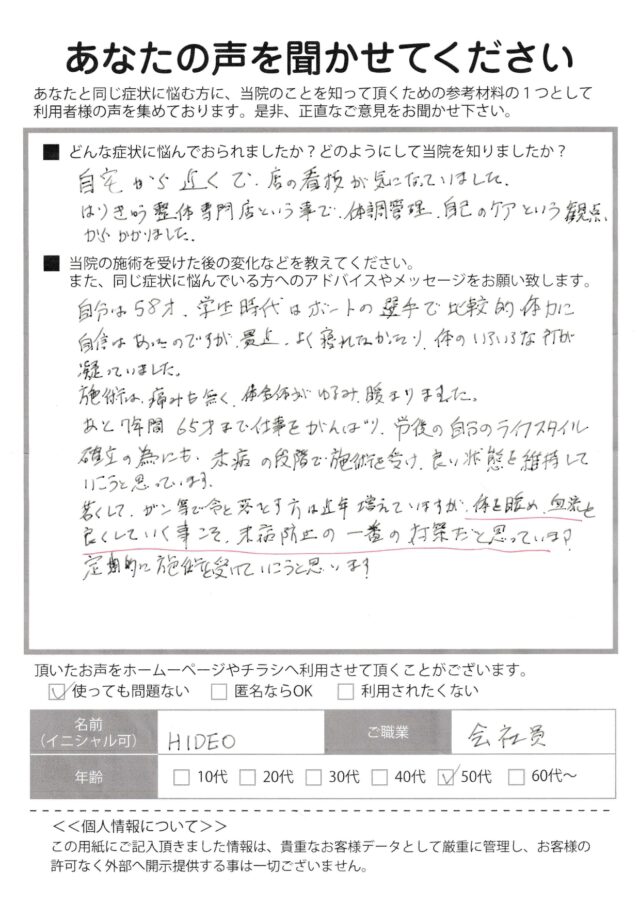 あなたの声を聞かせてください
あなたと同じ症状に悩む方に、当院のことを知って頂くための参考材料の１つとして
利用者様の声を集めております。是非、正直なご意見をお聞かせ下さい。
■ どんな症状に悩んでおられましたか？どのようにして当院を知りましたか？
自宅から近くで、店の看板が気になっていました。
はりきゅう整体専門店という事で、体調管理、自己のケアという観点
からかかりました。
■ 当院の施術を受けた後の変化などを教えてください。
また、同じ症状に悩んでいる方へのアドバイスやメッセージをお願い致します。
自分は58才、学生時代はボートの選手で比較的体力に
自信はあったのですが、最近、よく寝れなかったり、体のいろいろな所が
凝っていました。
施術は、痛みも無く、体全体がゆるみ、暖まりました。
あと7年間 65才まで仕事をがんばり、老後の自分のライフスタイル
確立の為にも、未病の段階で施術を受け、良い状態を維持して
いこうと思っています。
若くして、ガン等で命を落とす方は近年増えていますが、体を暖め、血流を
良くしていく事こそ、未病防止の一番の対策だと思っています。
定期的に施術を受けていこうと思います
頂いたお声をホームーページやチラシへ利用させて頂くことがございます。
☑ 使っても問題ない □ 匿名ならOK □ 利用されたくない
名前
（イニシャル可）
HIDEO
ご職業
会社員
年齢
□ 10代 □ 20代 □ 30代 □ 40代 ☑ 50代 □ 60代～
＜＜個人情報について＞＞
この用紙にご記入頂きました情報は、貴重なお客様データとして厳重に管理し、お客様の
許可なく外部へ開示提供する事は一切ございません。